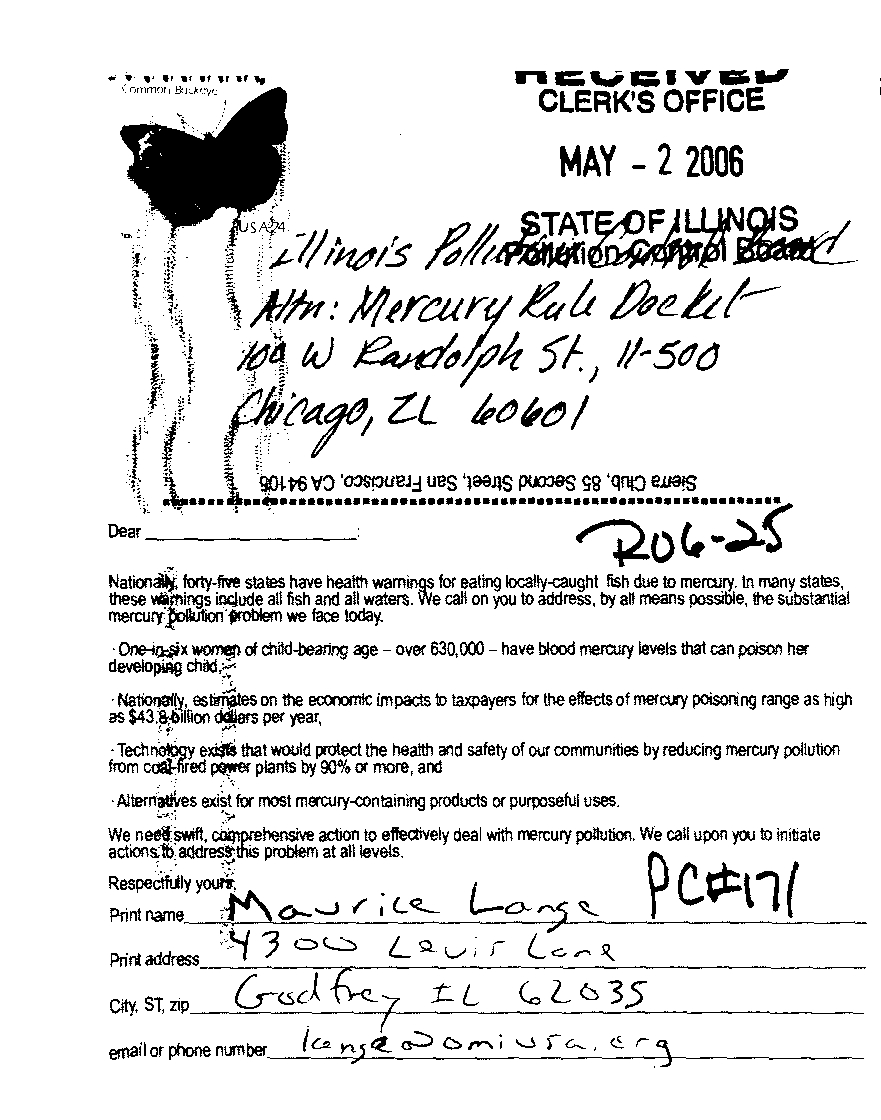 Common Buckeye
RECEIVED
CLERK'S OFFICE
MAY - 2 2006
STATE OF ILLINOIS
Pollution Control Board
USA 24
Illinois Pollution Control Board
Attn: Mercury Rule Docket
100 W Randolph St., 11-500
Chicago, IL 60601
Sierra Club, 85 Second Street, San Francisco, CA 94106
Dear
R06-25
Nationally, forty-five states have health warnings for eating locally-caught fish due to mercury. In many states,
these warnings include all fish and all waters. We call on you to address, by all means possible, the substantial
mercury pollution problem we face today.
· One-in-six women of child-bearing age – over 630,000 – have blood mercury levels that can poison her
developing child,
· Nationally, estimates on the economic impacts to taxpayers for the effects of mercury poisoning range as high
as $43.8-billion dollars per year,
· Technology exists that would protect the health and safety of our communities by reducing mercury pollution
from coal-fired power plants by 90% or more, and
· Alternatives exist for most mercury-containing products or purposeful uses.
We need swift, comprehensive action to effectively deal with mercury pollution. We call upon you to initiate
actions to address this problem at all levels.
Respectfully yours,
PC#171
Print name Maurice Lange
Print address 4300 Levis Lane
City, ST, zip Godfrey IL 62035
email or phone number lange@omiusa.org